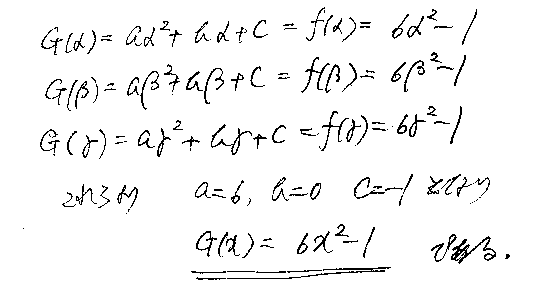 G(α) = aα²+ bα+C = f(α)= 6α²-1
G(β) = aβ²+ bβ+C = f(β)= 6β²-1
G(γ) = aγ²+ bγ+C = f(γ)= 6γ²-1
これより a=6, b=0 C=-1 となり
G(x) = 6x²-1 である.